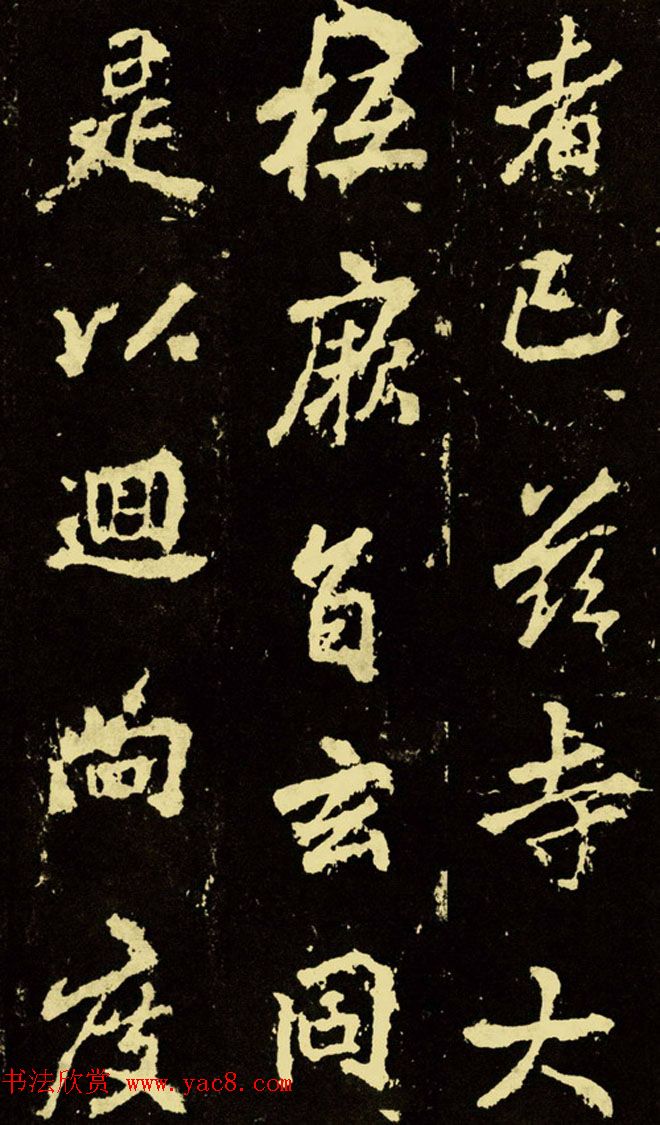 者已兹寺大
抵厥旨玄同
是以迴向度
书法欣赏 www.yac8.com